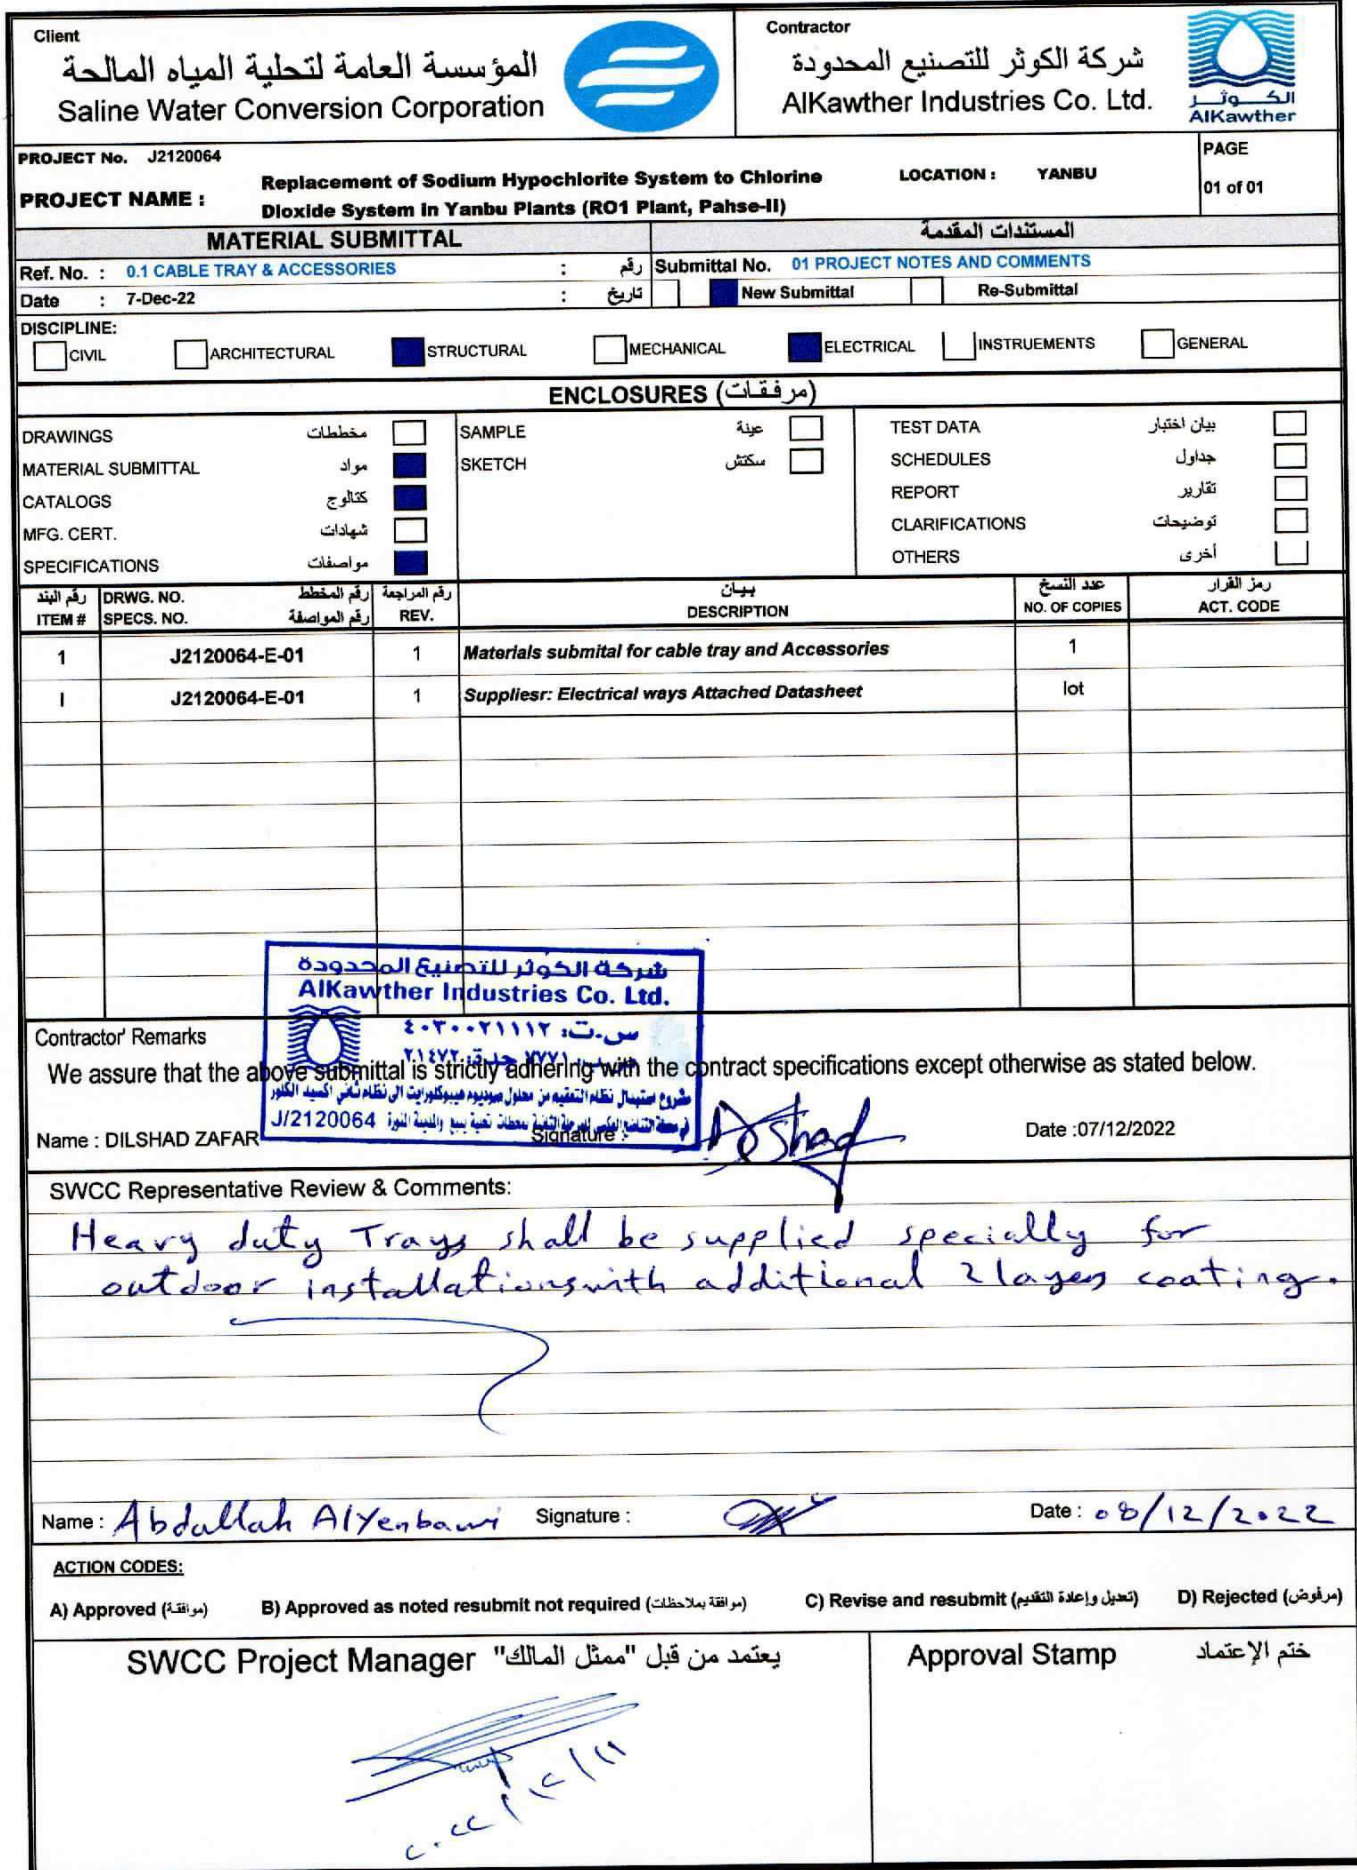 Client
المؤسسة العامة لتحلية المياه المالحة
Saline Water Conversion Corporation
Contractor
شركة الكوثر للتصنيع المحدودة
AlKawther Industries Co. Ltd.
الكوثر
AlKawther
PROJECT No. J2120064
PROJECT NAME : Replacement of Sodium Hypochlorite System to Chlorine
Dioxide System in Yanbu Plants (RO1 Plant, Pahse-II)
LOCATION : YANBU
PAGE
01 of 01
MATERIAL SUBMITTAL المستندات المقدمة
Ref. No. : 0.1 CABLE TRAY & ACCESSORIES : رقم Submittal No. 01 PROJECT NOTES AND COMMENTS
Date : 7-Dec-22 : تاريخ New Submittal Re-Submittal
DISCIPLINE:
CIVIL ARCHITECTURAL STRUCTURAL MECHANICAL ELECTRICAL INSTRUEMENTS GENERAL
ENCLOSURES (مرفقات)
DRAWINGS مخططات SAMPLE عينة TEST DATA بيان اختبار
MATERIAL SUBMITTAL مواد SKETCH سكتش SCHEDULES جداول
CATALOGS كتالوج REPORT تقارير
MFG. CERT. شهادات CLARIFICATIONS توضيحات
SPECIFICATIONS مواصفات OTHERS أخرى
رقم البند DRWG. NO. رقم المخطط رقم المراجعة بيان عدد النسخ رمز القرار
ITEM # SPECS. NO. رقم المواصفة REV. DESCRIPTION NO. OF COPIES ACT. CODE
1 J2120064-E-01 1 Materials submital for cable tray and Accessories 1
I J2120064-E-01 1 Suppliesr: Electrical ways Attached Datasheet lot
شركة الكوثر للتصنيع المحدودة
AlKawther Industries Co. Ltd.
س.ت: ٤٠٣٠٠٢١١١٢
٧٧٧١ جدة: ٢١٤٧٢
مشروع استبدال نظام التعقيم من محلول صوديوم هيبوكلورايت الى نظام ثاني اكسيد الكلور
J/2120064
Contractor' Remarks
We assure that the above submittal is strictly adhering with the contract specifications except otherwise as stated below.
Name : DILSHAD ZAFAR Signature : Date :07/12/2022
SWCC Representative Review & Comments:
Heavy duty Trays shall be supplied specially for
outdoor installations with additional 2 layers coating.
Name : Abdallah AlYenbawi Signature : Date : 08/12/2022
ACTION CODES:
A) Approved (موافقة) B) Approved as noted resubmit not required (موافقة بملاحظات) C) Revise and resubmit (تعديل وإعادة التقديم) D) Rejected (مرفوض)
SWCC Project Manager "يعتمد من قبل "ممثل المالك Approval Stamp ختم الإعتماد
٢٠٢٢/١٢/١١